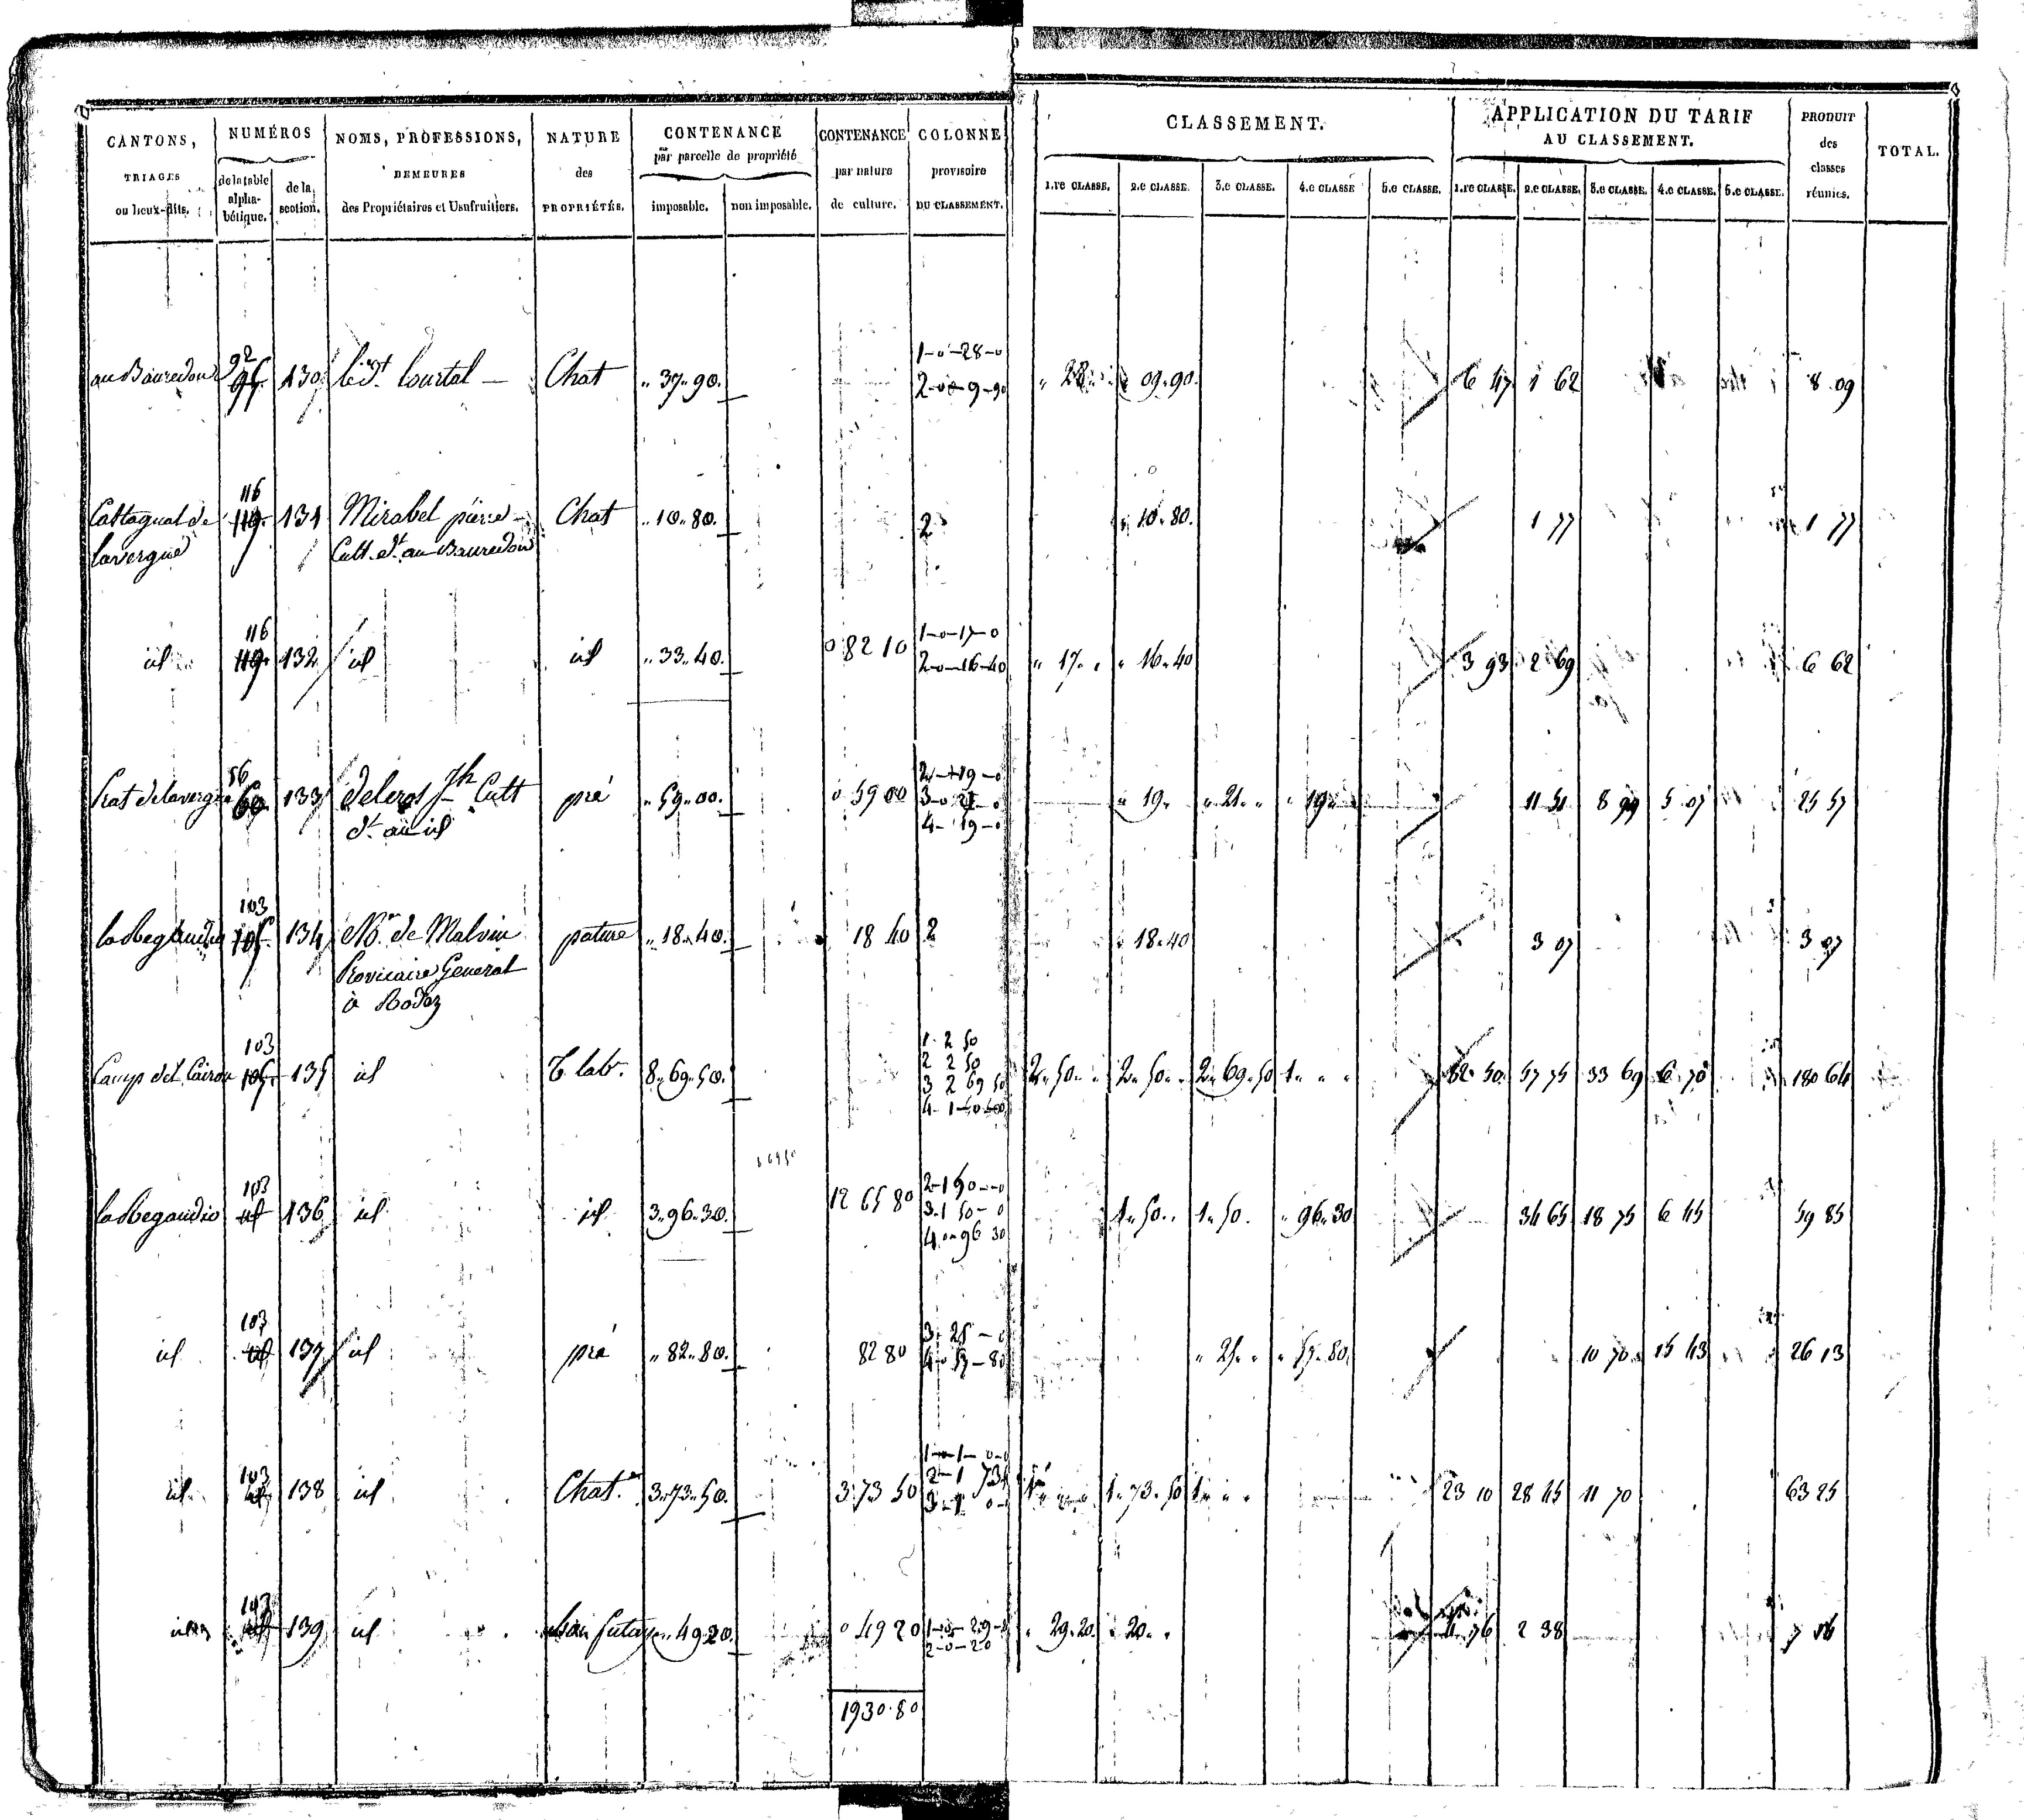 CANTONS, TRIAGES ou lieux-dits. | NUMÉROS de la table alphabétique. | de la section. | NOMS, PROFESSIONS, DEMEURES des Propriétaires et Usufruitiers. | NATURE des PROPRIÉTÉS. | CONTENANCE par parcelle de propriété imposable. | non imposable. | CONTENANCE par nature de culture. | COLONNE provisoire DU CLASSEMENT. | CLASSEMENT. 1.re CLASSE. | 2.e CLASSE. | 3.e CLASSE. | 4.e CLASSE | 5.e CLASSE. | APPLICATION DU TARIF AU CLASSEMENT. 1.re CLASSE. | 2.e CLASSE. | 3.e CLASSE. | 4.e CLASSE. | 5.e CLASSE. | PRODUIT des classes réunies. | TOTAL.
92 | 1-0-28-0
au Bouredou | 95 | 130 | led.t Courtal | Chat | „ 37 „ 90. | 2-0-9-90 | „ 28 „ | „ 09 „ 90. | 6 47 | 1 62 | 8 09
116
Cattagnal de | 119 | 131 | Mirabel pierre | Chat | „ 10 „ 80. | 2 | „ 10 „ 80. | 1 77 | 1 77
lavergne | Cult. d.t au Bouredou
116 | 1-0-17-0
id | 119 | 132 | id | id | „ 33 „ 40. | 0 82 10 | 2-0-16-40 | „ 17 „ „ | „ 16 „ 40 | 3 93 | 2 69 | 6 62
56 | 2-19-0
Prat de lavergne | 60 | 133 | Deleros Jh Cult | pré | „ 59 „ 00. | 0 59 00 | 3-0 21-0 | „ 19 „ | „ 21 „ „ | „ 19 „ | 11 51 | 8 99 | 5 07 | 25 57
d.t au id | 4-19-0
103
la Regaudio | 105 | 134 | M.r de Malvin | pature | „ 18 „ 40. | 18 40 | 2 | „ 18 „ 40 | 3 07 | 3 07
Provicaire General
à Rodez
103 | 1 2 50
2 2 50
Camp del Cairou | 105 | 135 | id | T. lab. | 8 „ 69 „ 50. | 3 2 69 50 | 2 „ 50 „ „ | 2 „ 50 „ „ | 2 „ 69 „ 50 | 1 „ „ „ | 82 50 | 57 75 | 33 69 | 6 70 | 180 64
4-1
103 | 2-1 50-0
la Regaudio | id | 136 | id | id | 3 „ 96 „ 30. | 12 65 80 | 3-1 50-0 | 1 „ 50 „ „ | 1 „ 50 „ | „ 96 „ 30 | 34 65 | 18 75 | 6 45 | 59 85
4 0-96 30
103 | 3-25-0
id | id | 137 | id | pré | „ 82 „ 80. | 82 80 | 4-0 57-80 | „ 25 „ „ | „ 57 „ 80. | 10 70 | 15 43 | 26 13
103 | 1-1-0-0
2-1 73
id | id | 138 | id | Chat. | 3 „ 73 „ 50. | 3 73 50 | 3-1 0- | 1 „ „ „ | 1 „ 73 „ 50 | 1 „ „ „ | 23 10 | 28 45 | 11 70 | 63 25
103
id | id | 139 | id | futaye | „ 49 20. | 0 49 20 | 1-0-29- | „ 29 „ 20. | „ 20 „ „ | 4 76 | 2 38 | 7 14
2-0-20
1930.80